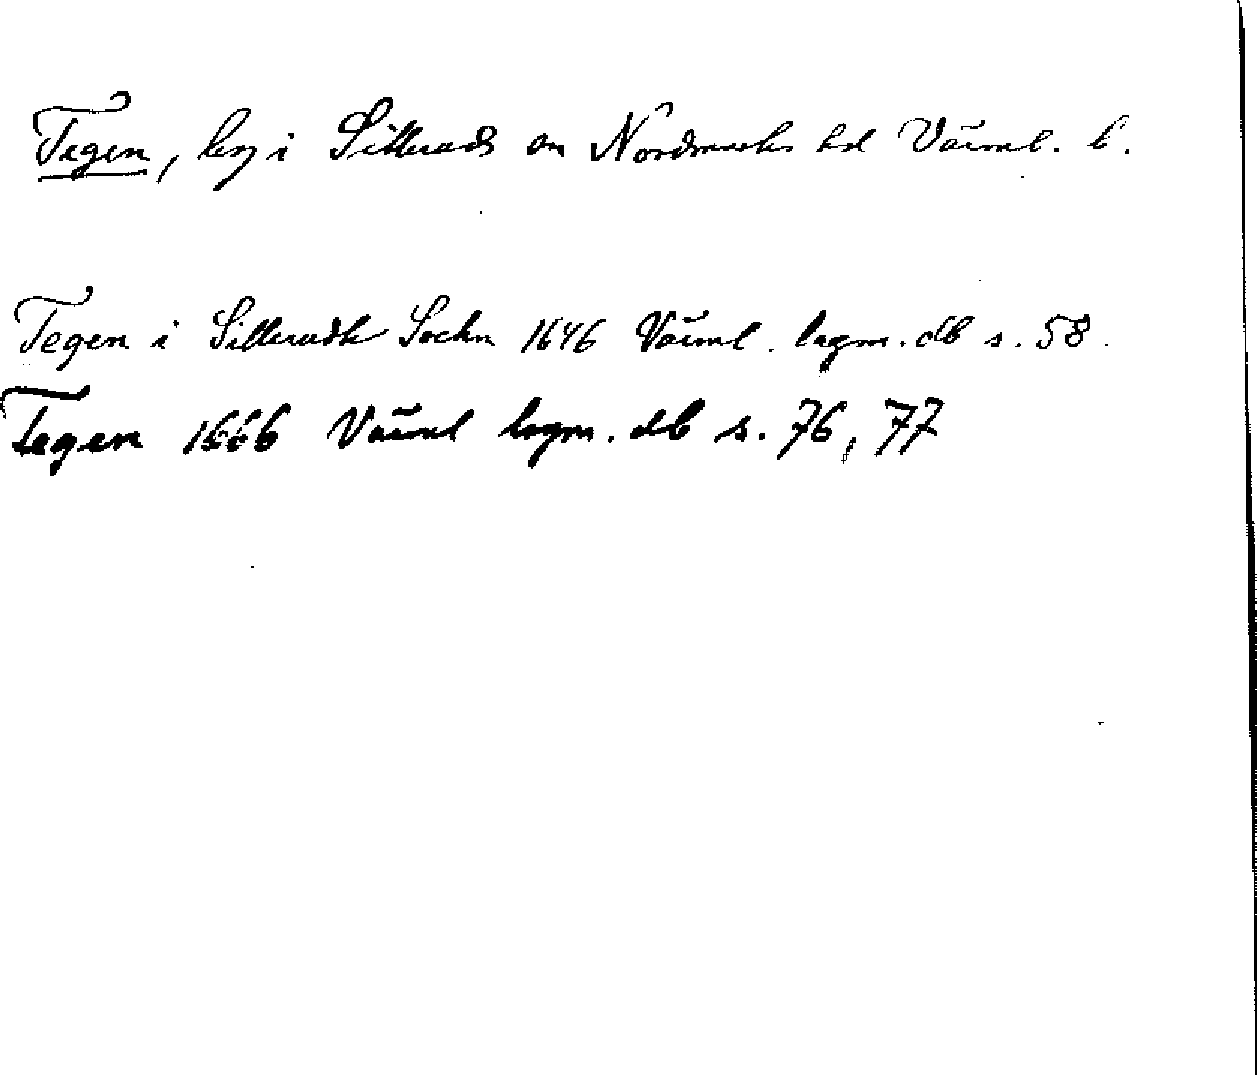 Tegen, by i Sillerud sn Nordmarks hd Värml. l.
Tegen i Sillerudh Sochn 1646 Värml. lagm. db s. 58.
Tegen 1666 Värml lagm. db s. 76, 77